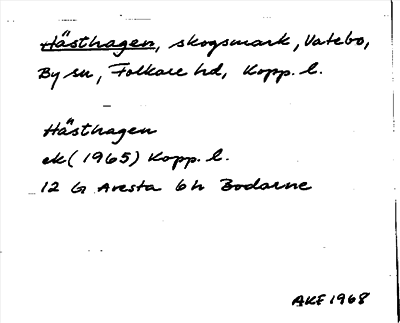 Hästhagen, skogsmark, Vatebo,
By sn, Folkare hd, Kopp. l.
Hästhagen
ek (1965) Kopp. l.
12 G Avesta 6h Bodarne
AKE 1968